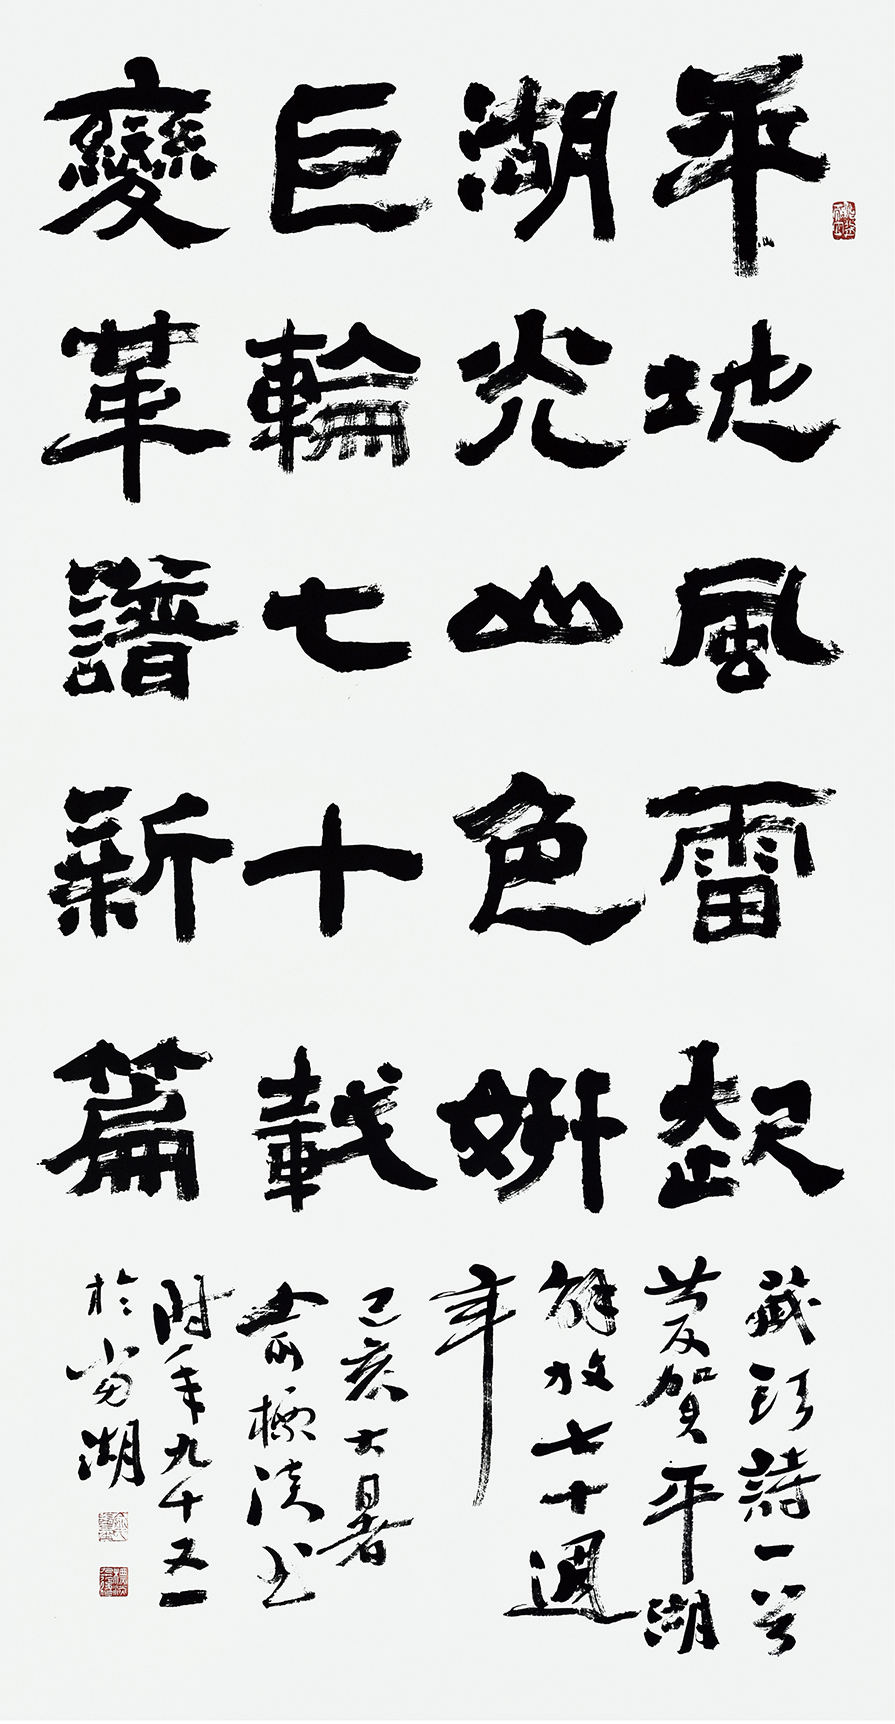 平地風雷起
湖光山色妍
巨輪七十載
變革譜新篇
藏頭詩一首
慶賀平湖
解放七十週
年
己亥大暑
俞標书
時年九十又一
於當湖